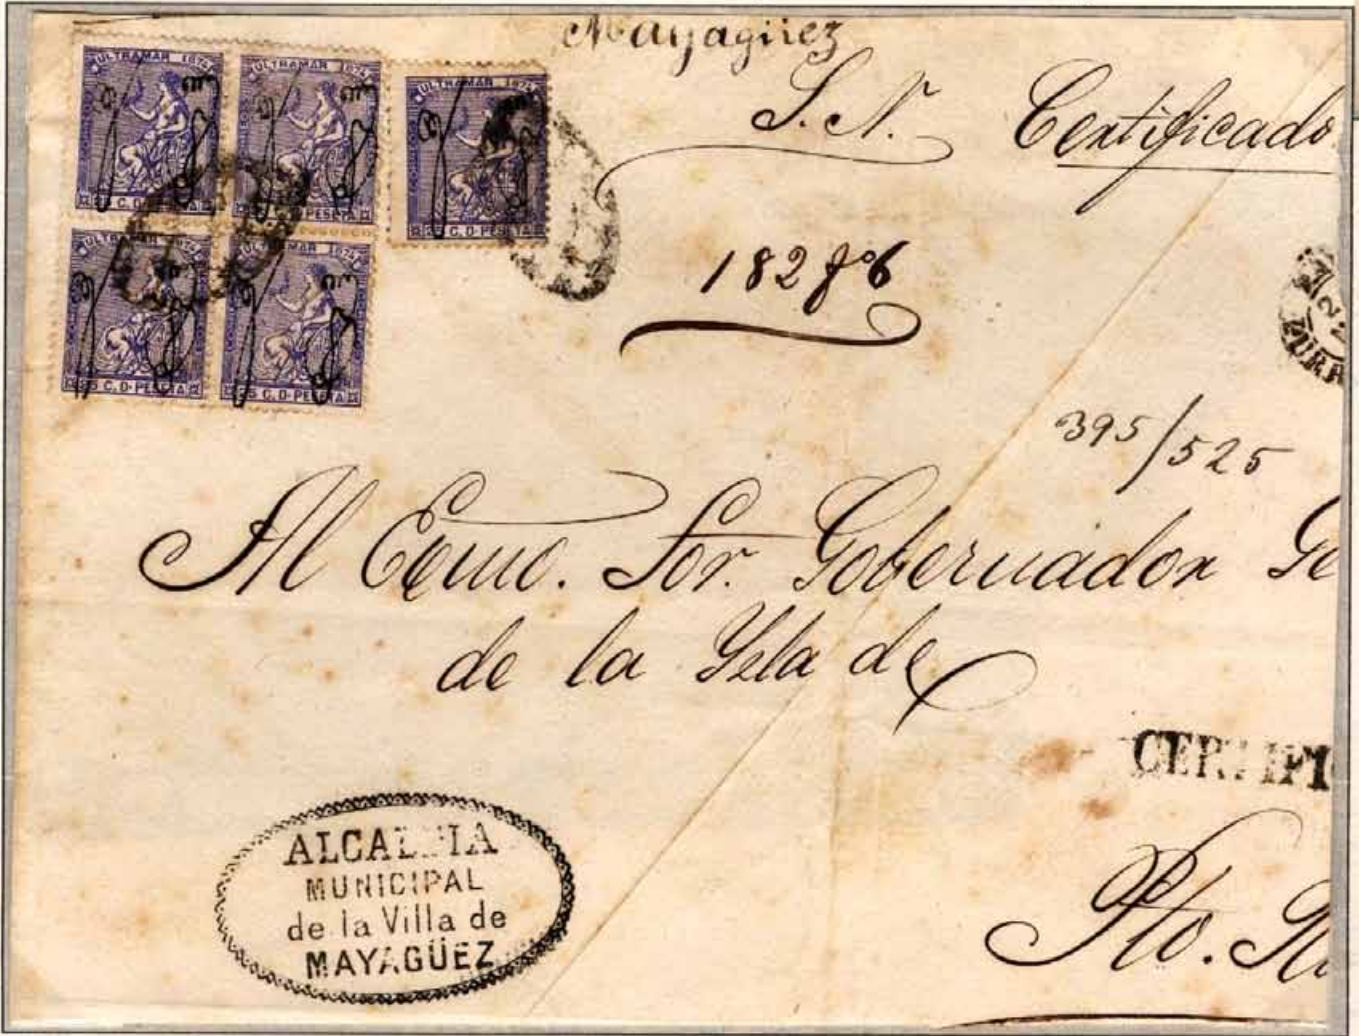 Mayagüez
S. N. Certificado
ULTRAMAR 1874
25 C. D. PESETA
ULTRAMAR 1874
25 C. D. PESETA
ULTRAMAR 1874
25 C. D. PESETA
182 fº 6
ULTRAMAR 1874
25 C. D. PESETA
ULTRAMAR 1874
25 C. D. PESETA
395/525
Al Ecmo. Sor. Gobernador Ge
de la Ysla de
CERTIFIC
Pto. Ri
ALCALDIA
MUNICIPAL
de la Villa de
MAYAGÜEZ